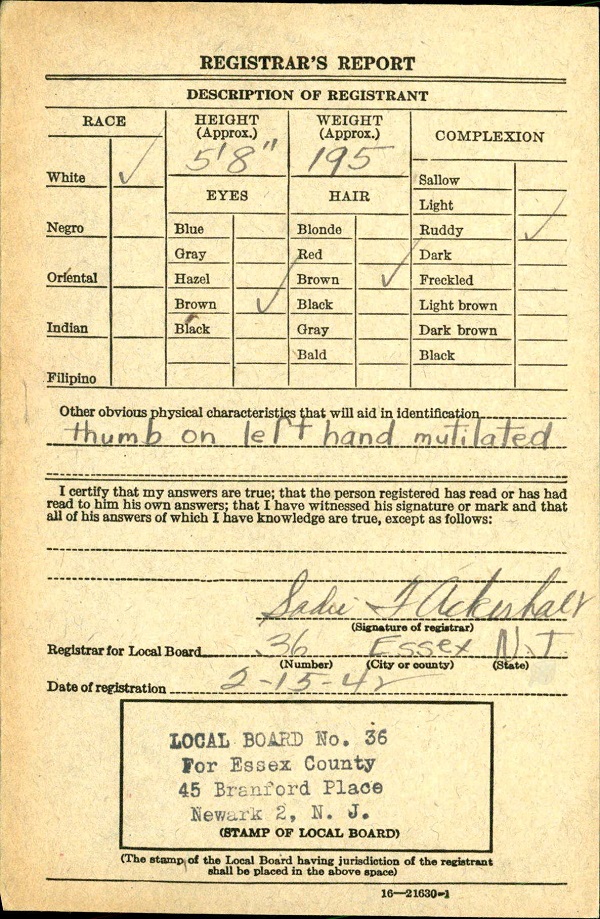 REGISTRAR'S REPORT
DESCRIPTION OF REGISTRANT
RACE
White ✓
Negro
Oriental
Indian
Filipino
HEIGHT
(Approx.)
5'8"
WEIGHT
(Approx.)
195
EYES
Blue
Gray
Hazel
Brown ✓
Black
HAIR
Blonde
Red
Brown ✓
Black
Gray
Bald
COMPLEXION
Sallow
Light
Ruddy ✓
Dark
Freckled
Light brown
Dark brown
Black
Other obvious physical characteristics that will aid in identification
thumb on left hand mutilated
I certify that my answers are true; that the person registered has read or has had
read to him his own answers; that I have witnessed his signature or mark and that
all of his answers of which I have knowledge are true, except as follows:
Sadie F Ackerhalt
(Signature of registrar)
Registrar for Local Board 36 Essex N.J.
(Number) (City or county) (State)
Date of registration 2-15-42
LOCAL BOARD No. 36
For Essex County
45 Branford Place
Newark 2, N. J.
(STAMP OF LOCAL BOARD)
(The stamp of the Local Board having jurisdiction of the registrant
shall be placed in the above space)
16—21630-1